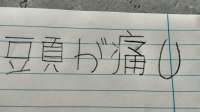 豆頁が痛い